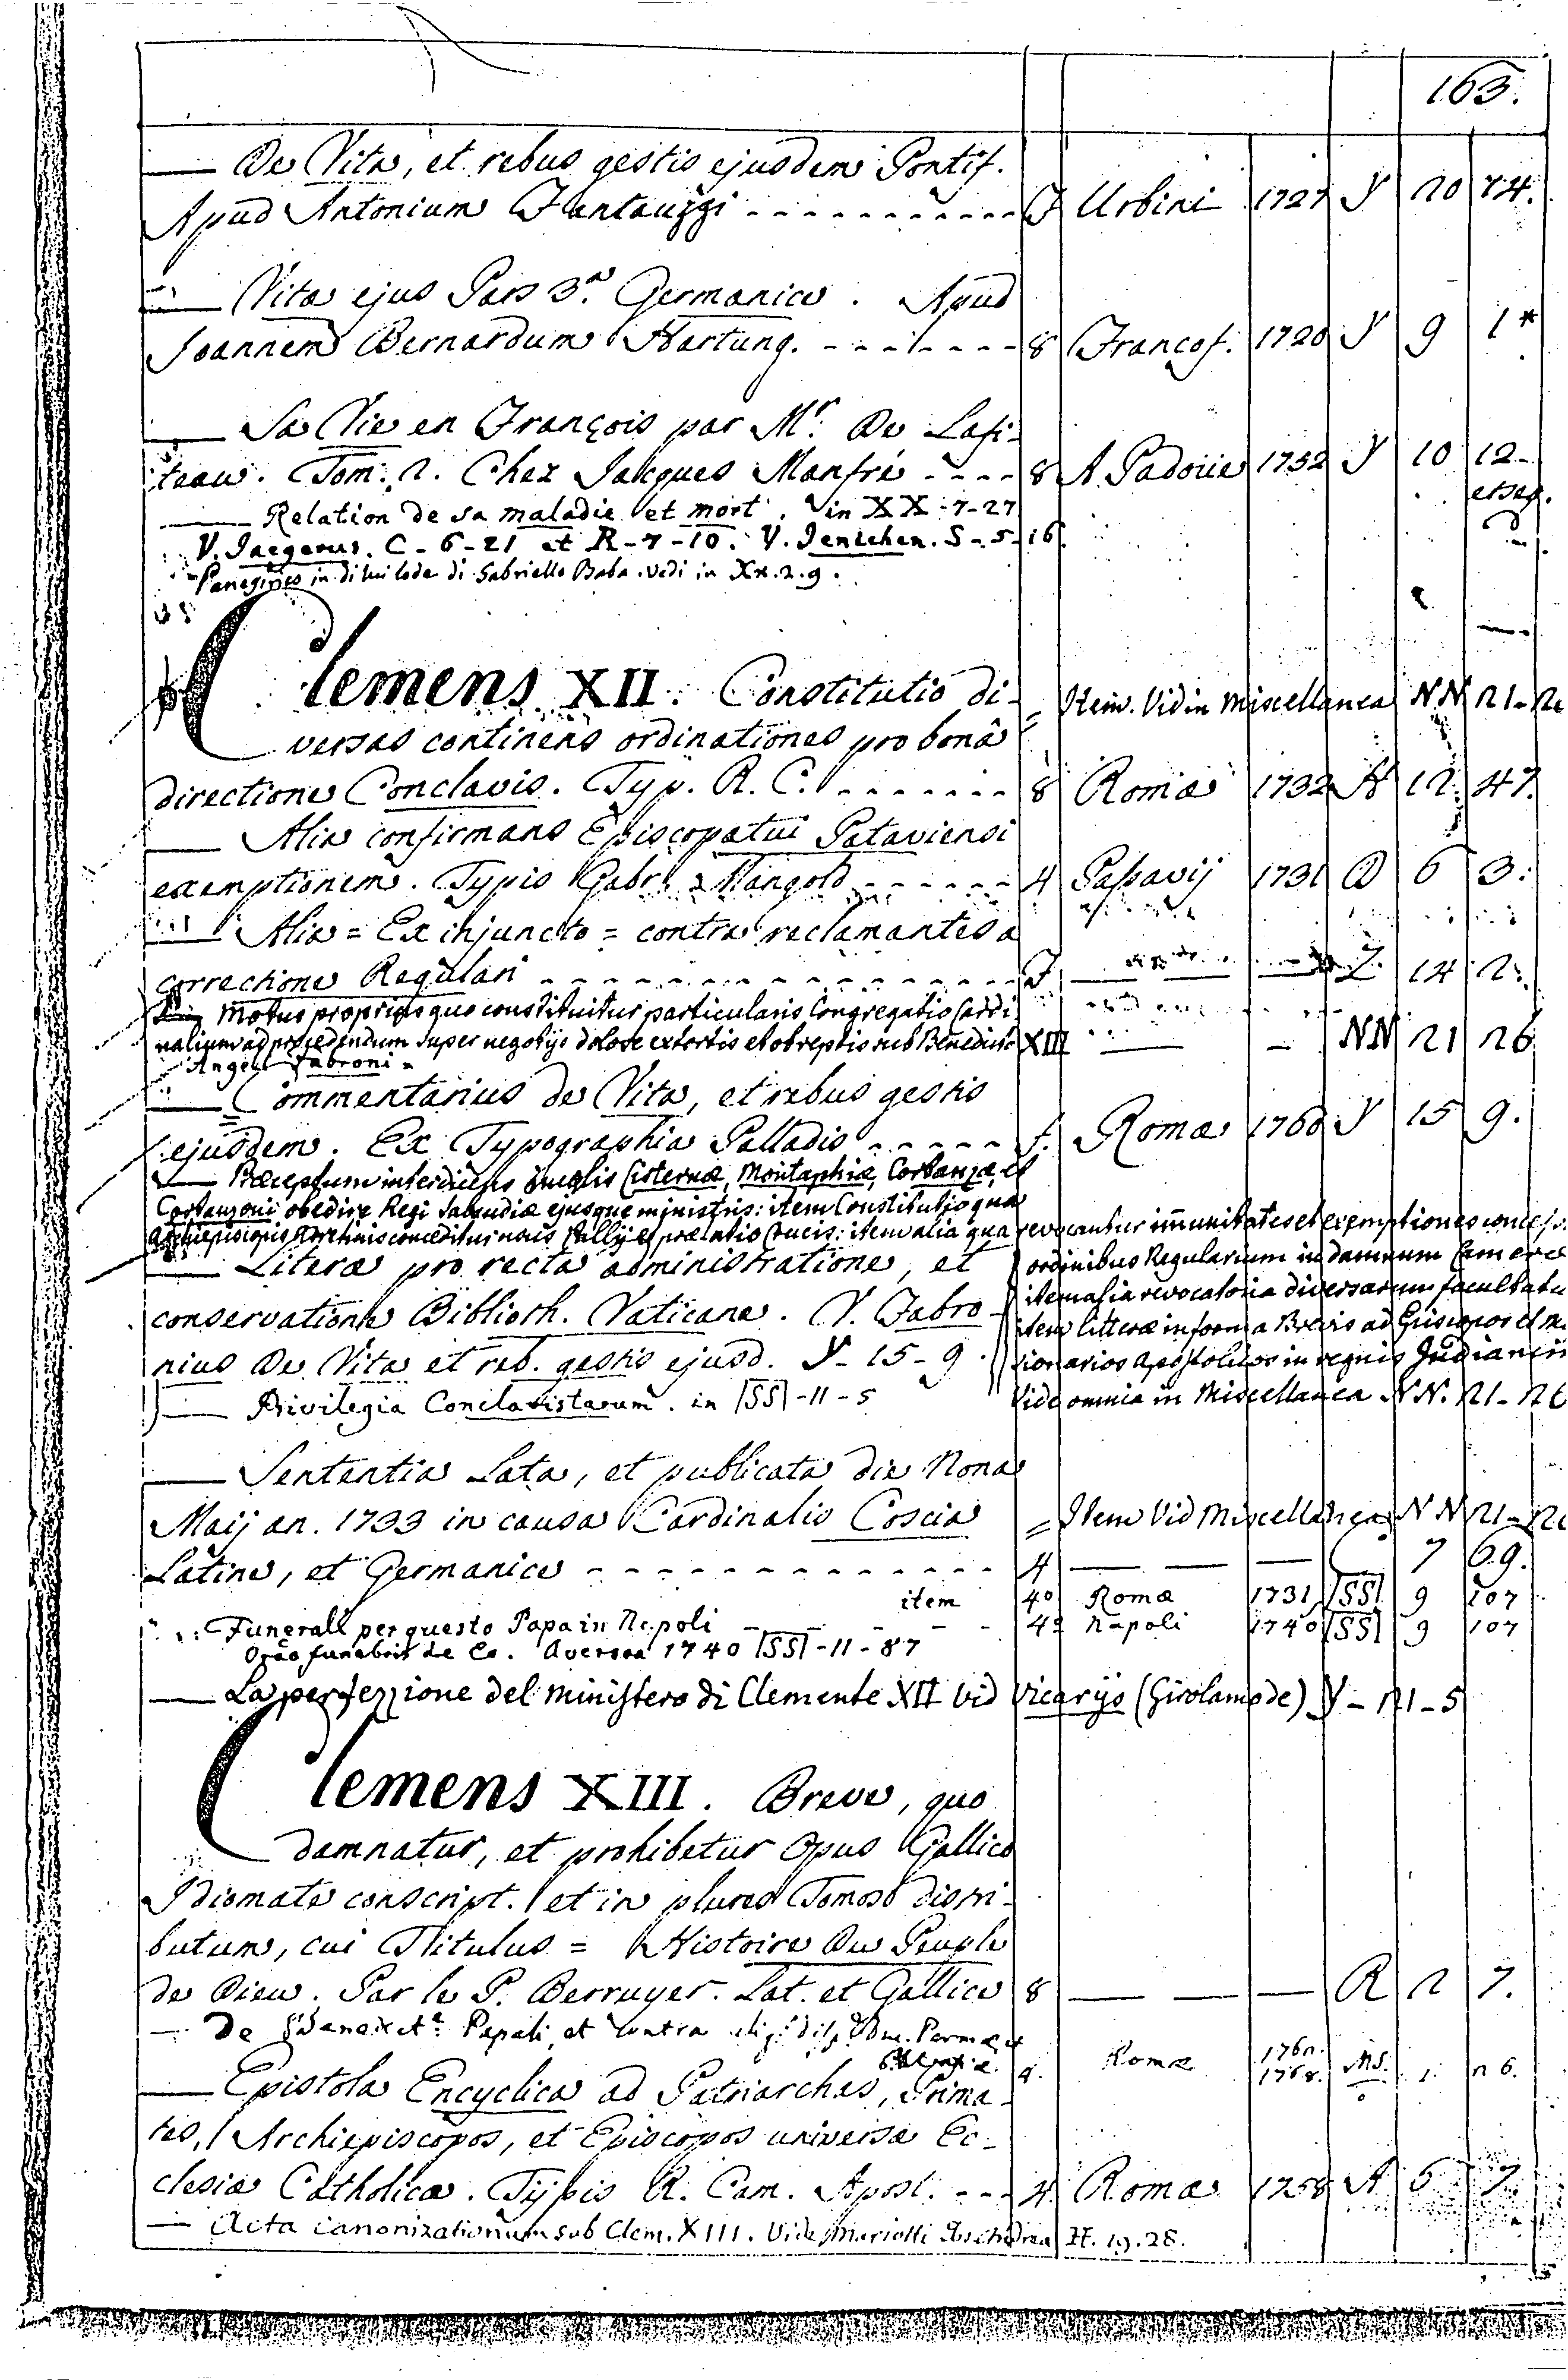 163.
— De Vita, et rebus gestis ejusdem Pontif.
Apud Antonium Fantauzzi - - - - - - f Urbini 1727 Y 20 74.
— Vita ejus Pars 3.ª Germanice. Apud
Joannem Bernardum Hartung. - - - - 8 Francof. 1720 Y 9 1*
— Sa Vie en François par M.r De Lafi-
teau. Tom. 2. Chez Jacques Manfré - - - - 8 A Padoüe 1752 Y 10 12-
et seq.
— Relation de sa maladie et mort. in XX-7-27
V. Jaegerus. C-6-21 et R-7-10. V. Jenichen. S-5-16.
in di lui lode di Gabriello Baba. vedi in Xx.2.9.
Clemens XII. Constitutio di- = Item. Vid in Miscellanea NN 21-
versas continens ordinationes pro bonâ
directione Conclavis. Typ. R. C. - - - - 8 Romæ 1732 H 12 47.
— Alia confirmans Episcopatui Pataviensi
exemptionem. Typis Gabr. Mangold - - - - 4 Passavij 1731 D 6 3.
— Alia = Ex injuncto = contra reclamantes a
correctione Regulari - - - - - - f — — Z 14 2.
Motus proprius quo constituitur particularis Congregatio Cardi
nalium ad procedendum super negotijs dolose extortis et obreptis sub Benedicto XIII — — NN 21 26
Angeli Fabroni =
— Commentarius de Vita, et rebus gestis
ejusdem. Ex Typographia Palladis - - - - - f. Romæ 1760 Y 15 9.
— Præceptum interdicens Cisternæ, Montaphiæ, Corbanzæ, et
Corbanzoni obedire Regi Sabaudiæ ejusque ministris: item Constitutio qua
Archiepiscopis conceditur usus Pallij et prælatio Crucis: item alia qua revocantur immunitates et exemptiones
— Literæ pro recta administratione, et ordinibus Regularium in damnum
conservatione Biblioth. Vaticanæ. V. Fabro- item alia revocatoria diversarum
item litteræ in forma Brevis ad Episcopos et
nius De Vita et reb. gestis ejusd. Y-15-9. sionarios Apostolicos in regnis
— Privilegia Conclavistarum. in |SS|-11-5 Vide omnia in Miscellanea NN. 21-26
— Sententia Lata, et publicata die Nona
Maij an. 1733 in causa Cardinalis Coscia = Item Vid Miscellanea NN 21-
Latine, et Germanice - - - - - - 4 — — — 7 69.
item 4º Romæ 1731 |SS| 9 107
Funerali per questo Papa in Napoli - - - - 4º Napoli 1740 |SS| 9 107
funebris de Eo. Aversa 1740 |SS|-11-87
— La perfezione del ministero di Clemente XII vid Vicarijs (Girolamo de) Y-21-5
Clemens XIII. Breve, quo
damnatur, et prohibetur Opus Gallico
Idiomate conscript. et in plures Tomos distri-
butum, cui Titulus = Histoire Du Peuple
de Dieu. Par le P. Berruyer. Lat. et Gallice 8 — — — R 2 7.
Papali et contra
4. Romæ 1768. MS. 1. 26.
— Epistola Encyclica ad Patriarchas, Prima-
tes, Archiepiscopos, et Episcopos universæ Ec-
clesiæ Catholicæ. Typis R. Cam. Apost. - - - 4 Romæ 1758 A 6 7.
— Acta Canonizationum sub Clem. XIII. Vide Mariotti H. 19. 28.